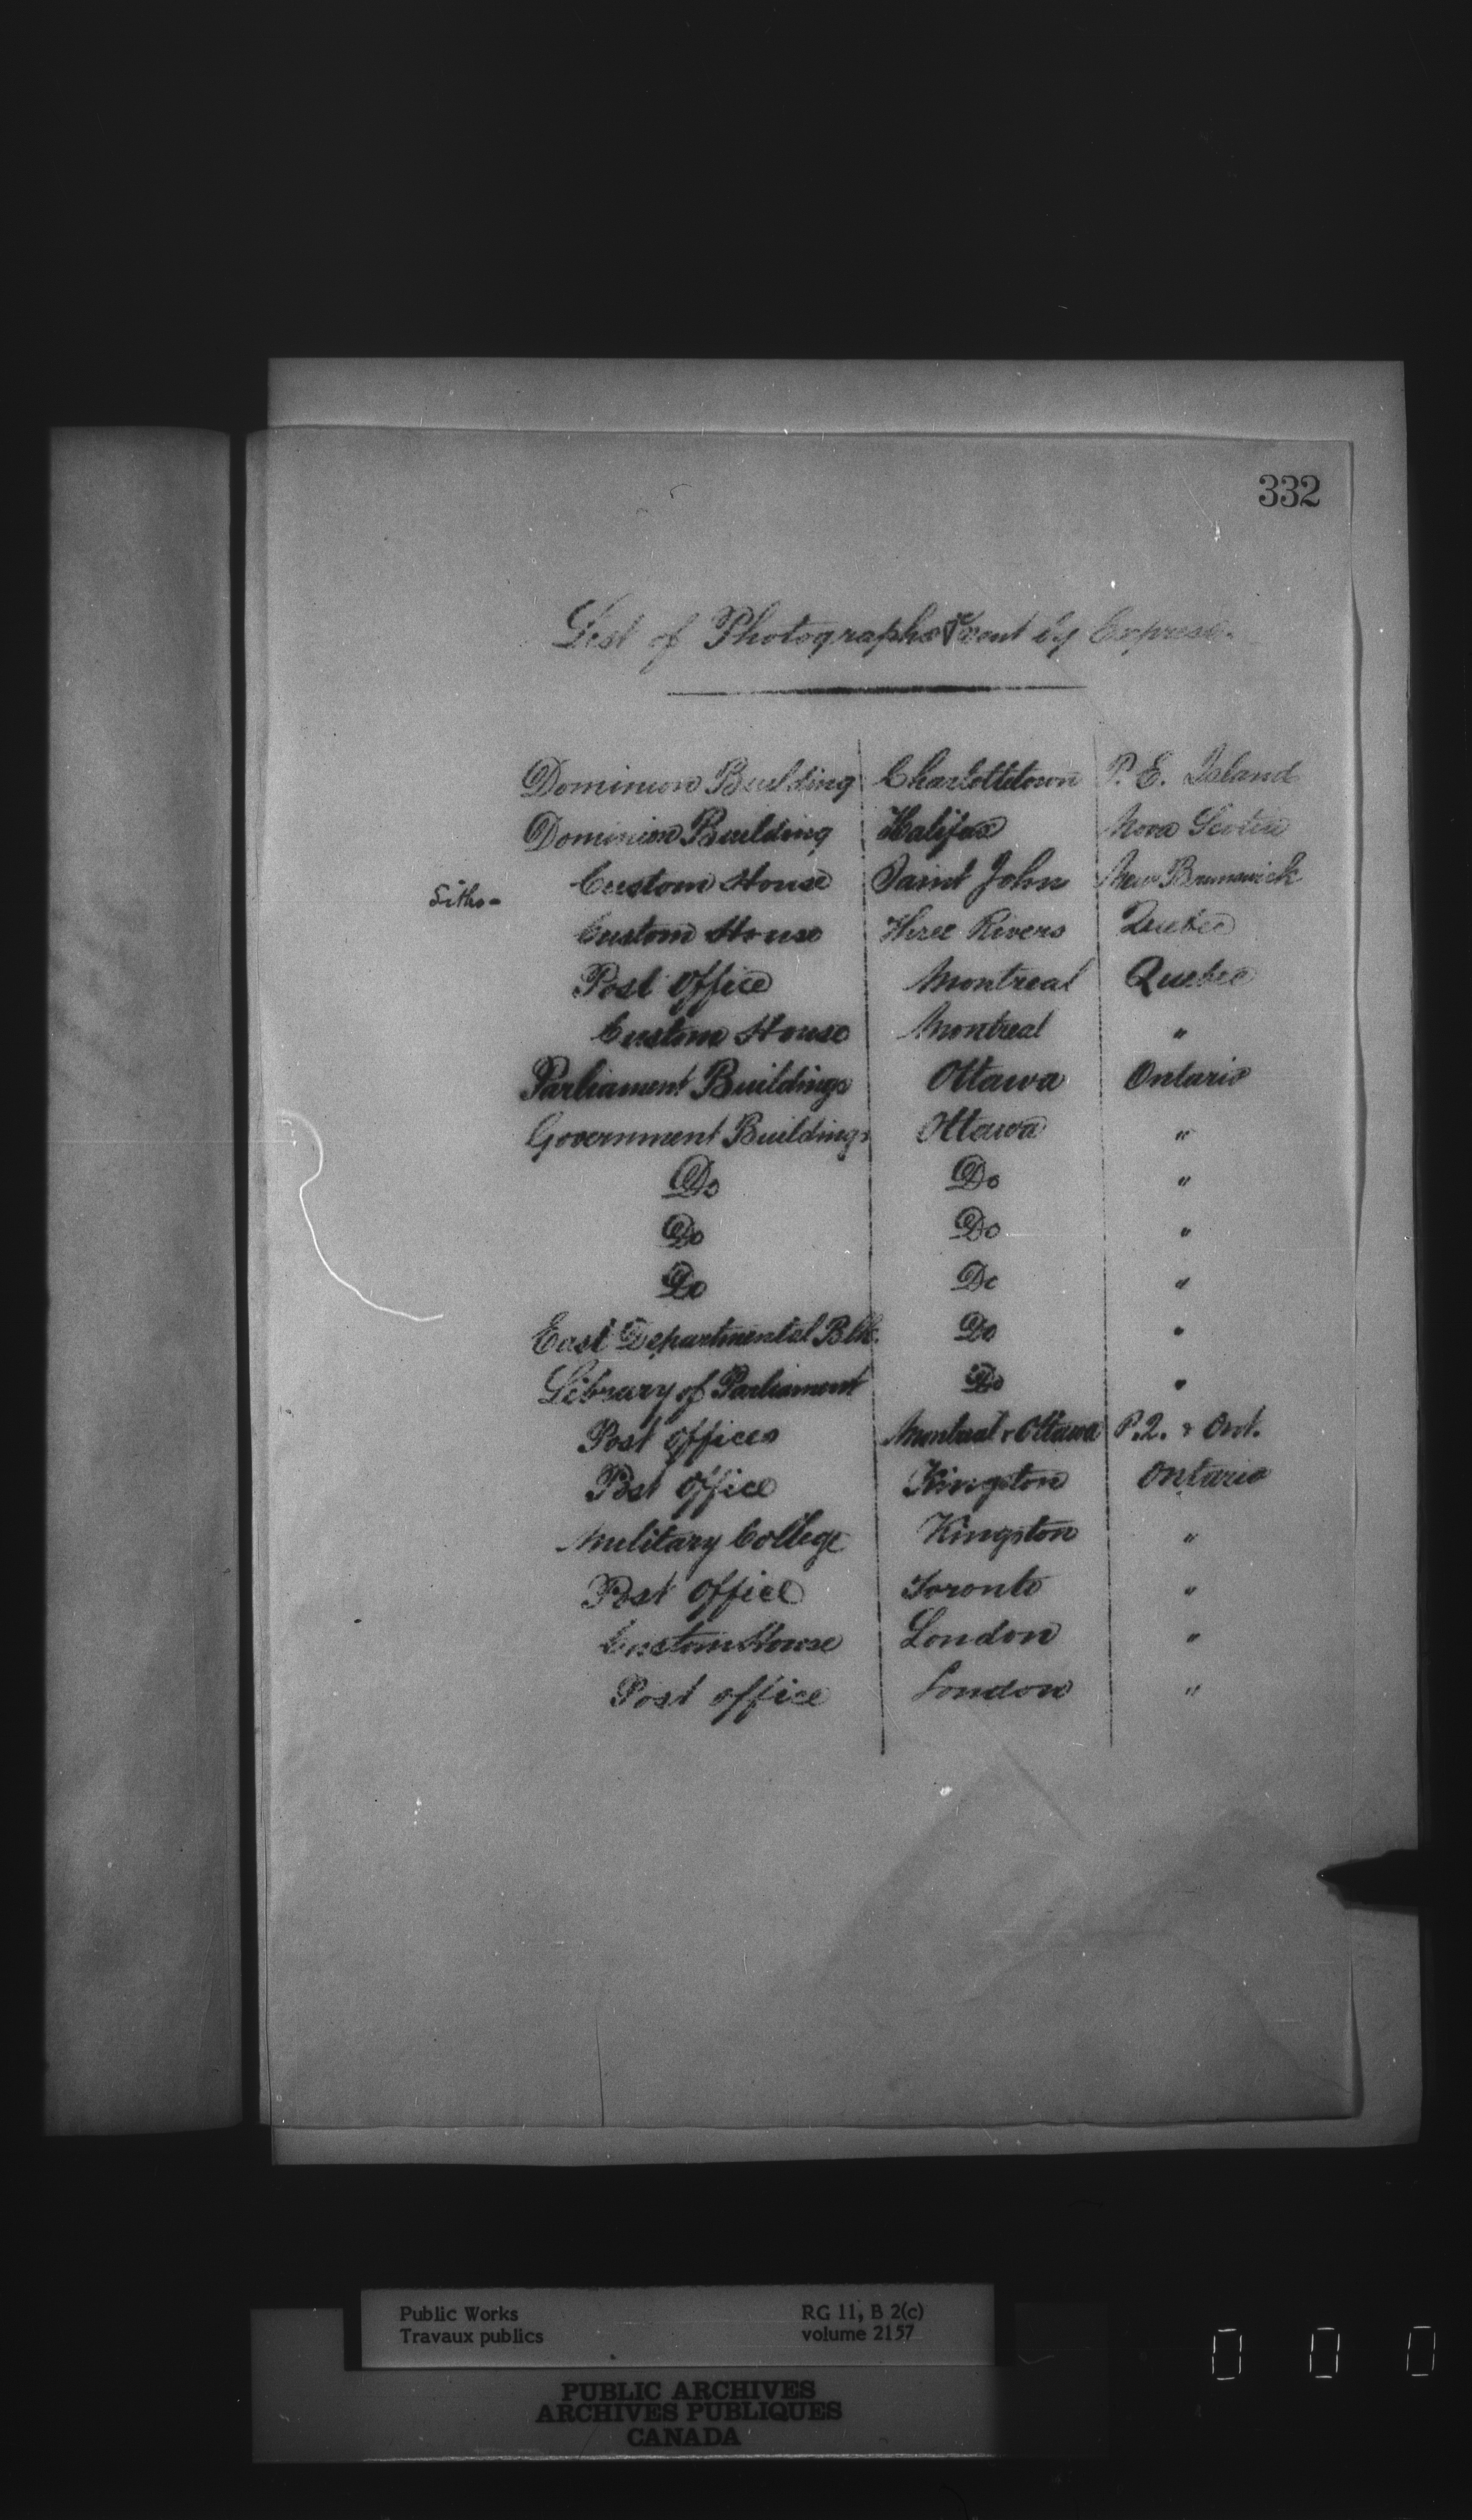 332
List of Photographs &c sent by Express.
Dominion Building Charlottetown P. E. Island
Dominion Building Halifax Nova Scotia
Litho- Custom House Saint John New Brunswick
Custom House Three Rivers Quebec
Post Office Montreal Quebec
Custom House Montreal "
Parliament Buildings Ottawa Ontario
Government Buildings Ottawa "
Do Do "
Do Do "
Do Do "
East Departmental Blk. Do "
Library of Parliament Do "
Post Offices Montreal & Ottawa P.Q. & Ont.
Post Office Kingston Ontario
Military College Kingston "
Post Office Toronto "
Custom House London "
Post office London "
Public Works RG 11, B 2(c)
Travaux publics volume 2157
PUBLIC ARCHIVES
ARCHIVES PUBLIQUES
CANADA
0 0 0